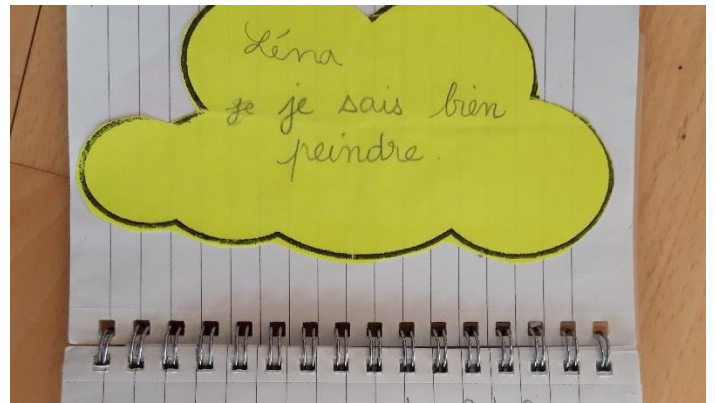 Léna
je je sais bien
peindre.